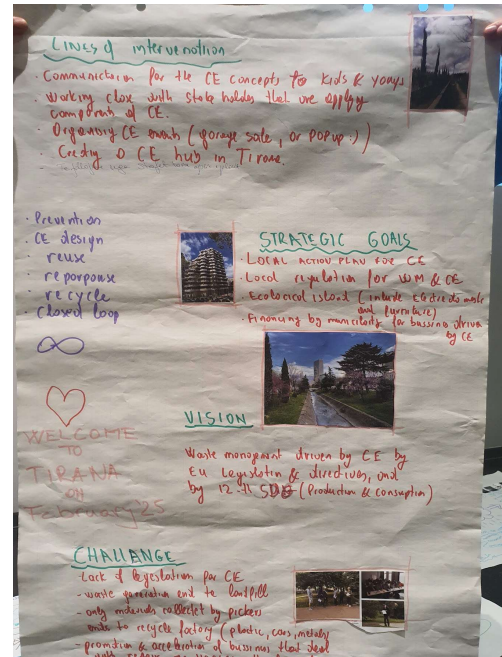 LINES of intervenation
· Communication for the CE concepts for kids & youngs
· working close with stake holders that are applying
components of CE.
· Organising CE events (garage sale, or POP up :) )
· Creatig a CE hub in Tirana.
· Prevention
· CE design
reuse
reporpouse
recycle
· closed loop
STRATEGIC GOALS
· LOCAL ACTION PLAN FOR CE
· Local regulation for WM & CE
· Ecological island (include electronic waste
and furniture)
· Financing by municipality for bussines driven
by CE
VISION
Waste management driven by CE by
EU Legislation & directives, and
by 12-th SDG (Production & consuption)
WELCOME
TO
TIRANA
ON
February '25
CHALLANGE
- Lack of legeslation for CE
- waste generation end to landfill
- only materials collectet by pickers
ends to recycle factory (plastic, cans, metals)
- promotion & acceleration of bussines that deal